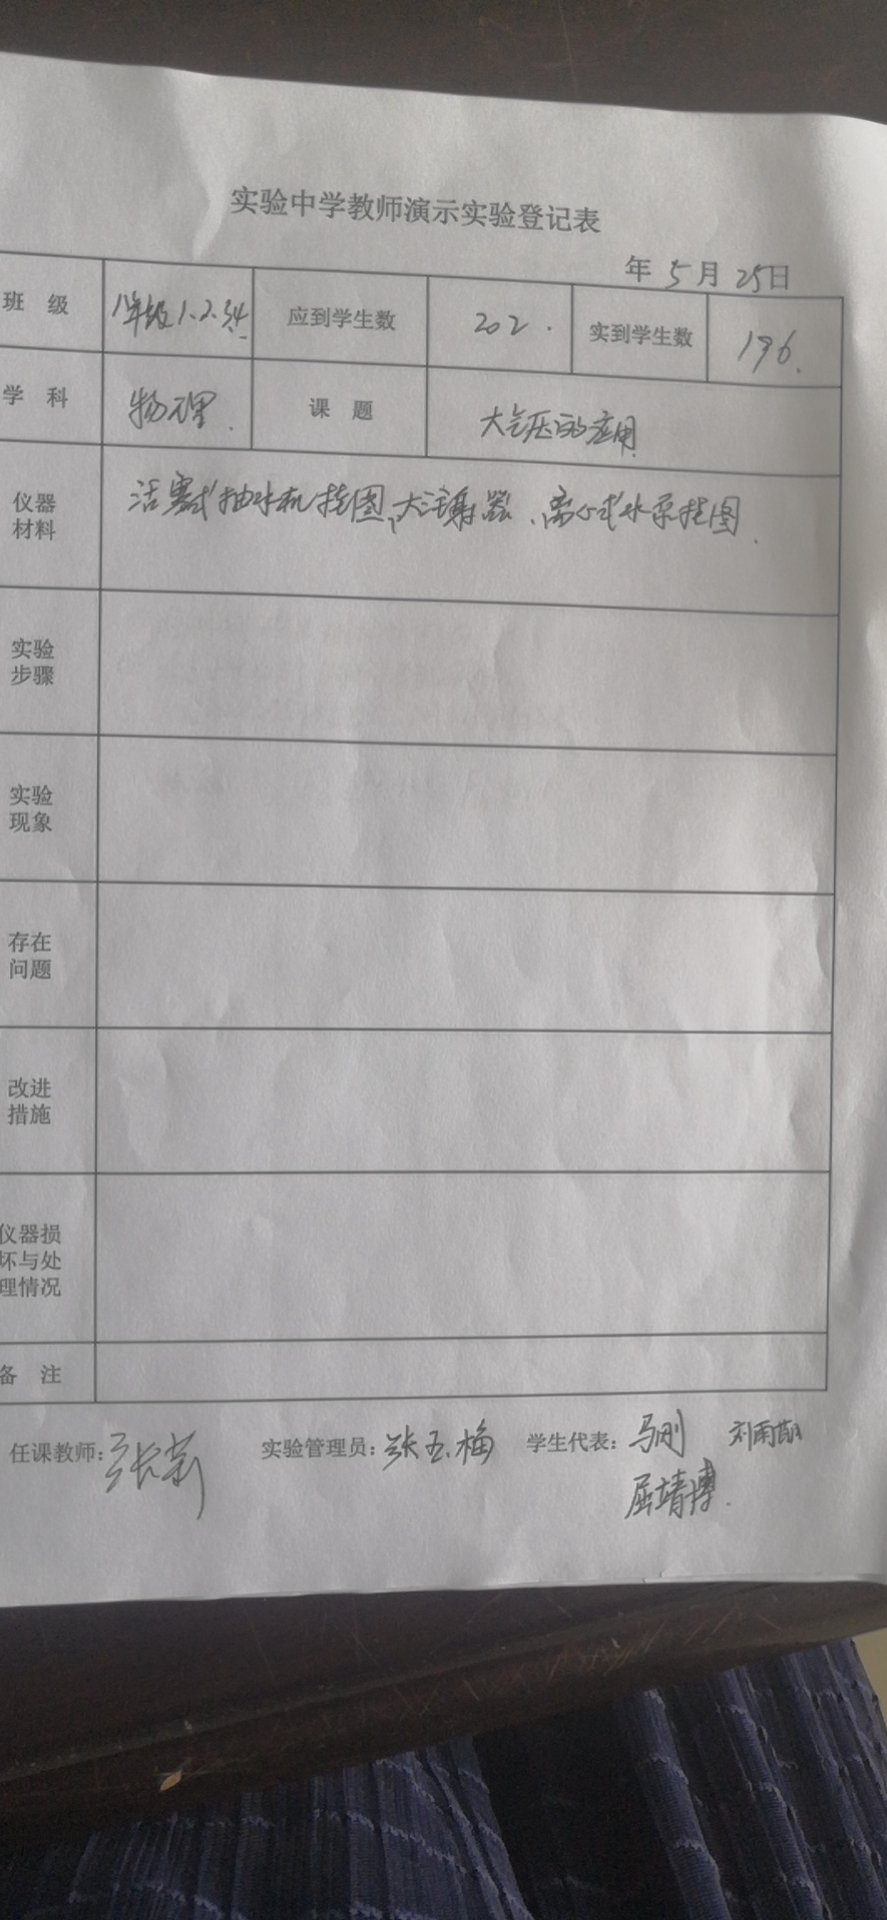 实验中学教师演示实验登记表
年 5 月 25 日
班 级 八年级1.2.3.4 应到学生数 202. 实到学生数 196.
学 科 物理. 课 题 大气压的应用
仪器材料 活塞式抽水机挂图、大注射器、离心式水泵挂图.
实验步骤
实验现象
存在问题
改进措施
仪器损坏与处理情况
备 注
任课教师: 张 实验管理员: 张玉梅 学生代表: 马刚 刘雨
屈靖博.